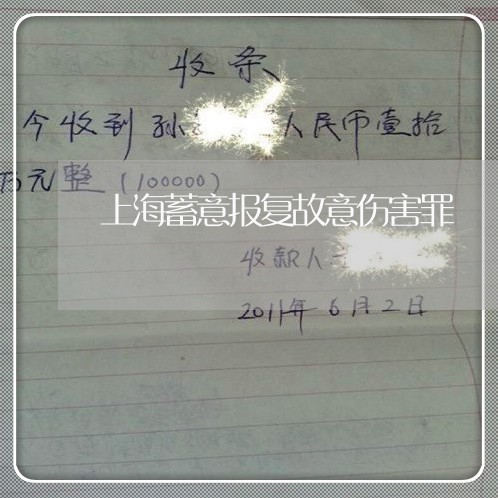 收条
今收到孙 人民币壹拾
万元整(100000)
上海蓄意报复故意伤害罪
收款人
2011年6月2日